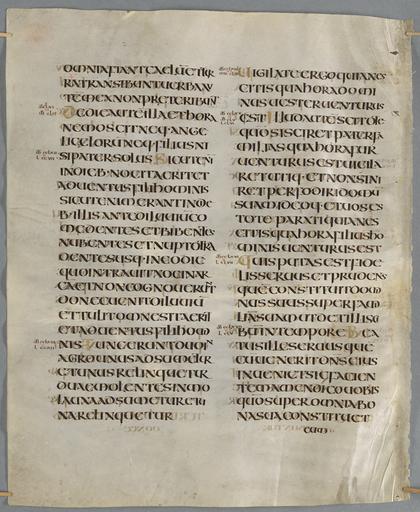 OMNIAFIANTCAELUETTER
RATRANSIBUNTUERBAAU
TEMMEANONPRETERIBUNT
DEDIEAUTEILLAETHORA
NEMOSCITNEQ·ANGE
LICAELORUNEQ·FILIUSNI
SIPATERSOLUS SICUTENI
INDIEB·NOEITAERITET
ADUENTUSFILIIHOMINIS
SICUTENIMERANTINDIE
B·ILLISANTEDILUUIUCO
MEDENTESETBIBENTES
NUBENTESETNUPTUITRA
DENTESUSQ·INEODIE
QUOINTRAUITNOEINAR
CAETNONCOGNOUERUNT
DONECUENITDILUUIU
ETTULITOMNESITAERIT
ETADUENTUSFILIIHOMI
NIS TUNCERUNTDUOIN
AGROUNUSADSUMETUR
ETUNUSRELINQUETUR
DUAEMOLENTESINMO
LAUNAADSUMETURETU
NARELINQUETUR
UIGILATEERGOQUIANES
CITISQUAHORADOMI
NUSUESTERUENTURUS
EST ILLUDAUTESCITOTE
QUOSISCIRETPATERFA
MILIASQUAHORAFUR
UENTURUSESTUIGILA
RETUTIQ·ETNONSINI
RETPERFODIDOMU
SUAMIDEOQ·ETUOSES
TOTEPARATIQUIANES
CITISQUAHORAFILIUSHO
MINISUENTURUSEST
QUISPUTASESTFIDE
LISSERUUSETPRUDENS
QUECONSTITUITDOMI
NUSSUUSSUPERFAMI
LIASUAMUTDETILLIS
CIBUINTEMPORE BEA
TUSILLESERUUSQUE
CUUENERITDNSEIUS
INUENERITSICFACIEN
TEMAMENDICOUOBIS
QUOSUPEROMNIABO
NASUACONSTITUET
EUM